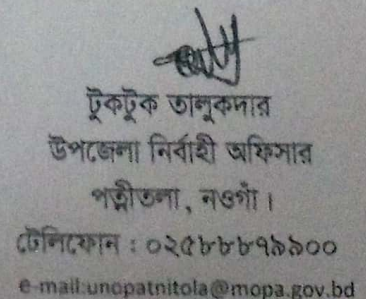 টুকটুক তালুকদার
উপজেলা নির্বাহী অফিসার
পত্নীতলা, নওগাঁ।
টেলিফোন : ০২৫৮৮৮৭৯৯০০
e-mail:unopatnitola@mopa.gov.bd